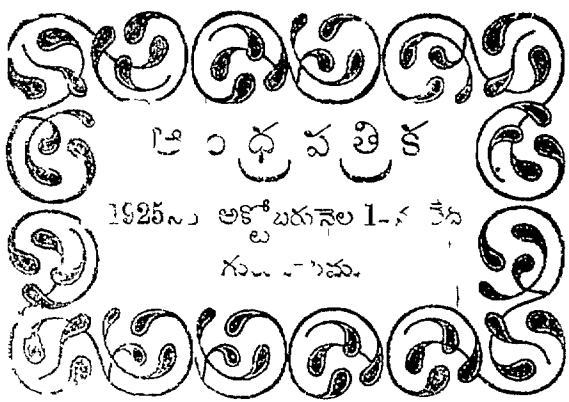 ఆంధ్రపత్రిక
1925సం అక్టోబరునెల 1-న తేది